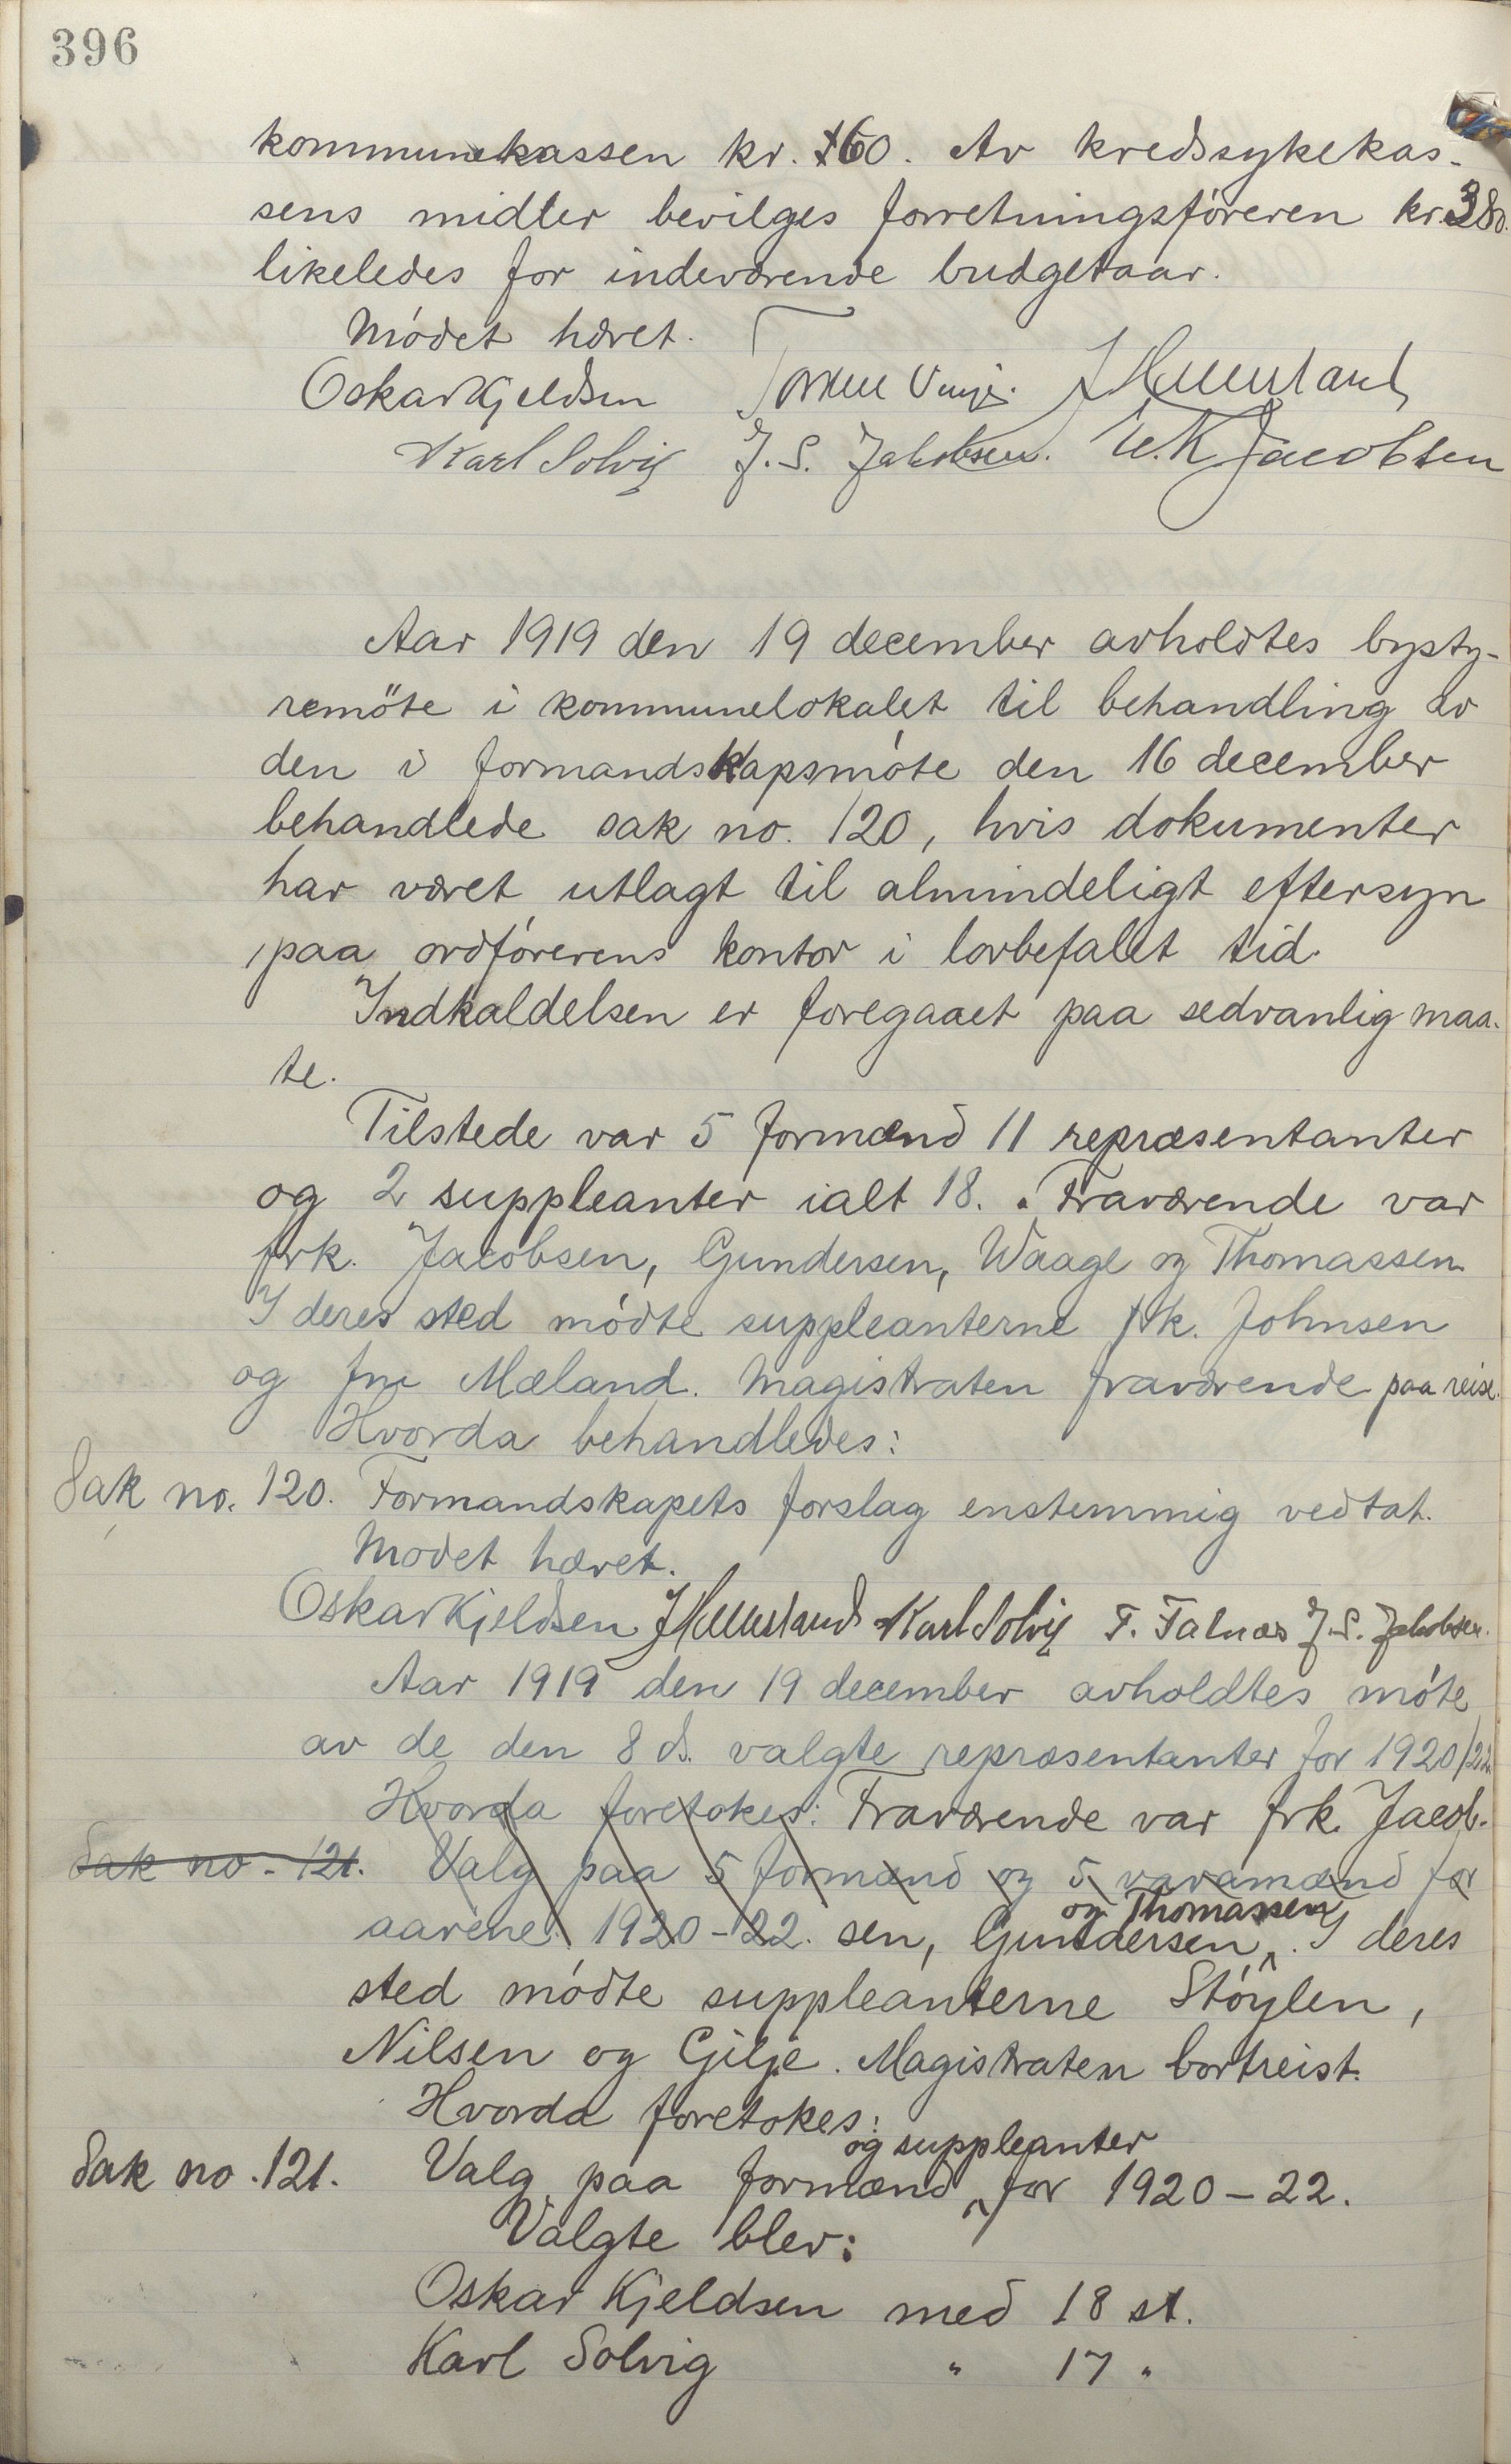 396
kommunekassen kr. 160. Av kredssykekas-
sens midler bevilges forretningsføreren kr. 380.
likeledes for indeværende budgetaar.
Mødet hævet.
Oskar Kjeldsen
Karl Solvig J. S. Jakobsen. Jacobsen
Aar 1919 den 19 december avholdtes bysty-
remöte i kommunelokalet til behandling av
den i formandskapsmøte den 16 december
behandlede sak no. 120, hvis dokumenter
har været utlagt til almindeligt eftersyn
paa ordførerens kontor i lovbefalet tid.
Indkaldelsen er foregaaet paa sedvanlig maa-
te.
Tilstede var 5 formænd 11 repræsentanter
og 2 suppleanter ialt 18. Fraværende var
frk. Jacobsen, Gundersen, Waage og Thomassen
I deres sted mødte suppleanterne frk. Johnsen
og fru Mæland. Magistraten fraværende paa reise.
Hvorda behandledes:
Sak no. 120. Formandskapets forslag enstemmig vedtat.
Mødet hævet.
Oskar Kjeldsen Karl Solvig F. Falnæs J. S. Jakobsen.
Aar 1919 den 19 december avholdtes møte
av de den 8 ds. valgte repræsentanter for 1920/22.
Hvorda foretokes: Fraværende var frk. Jacob-
Sak no. 121. Valg paa 5 formænd og 5 varamænd for
aarene 1920-22. sen, Gundersen og Thomassen. I deres
sted mødte suppleanterne Støylen,
Nilsen og Gilje. Magistraten bortreist.
Hvorda foretokes:
Sak no. 121. Valg paa formænd og suppleanter for 1920-22.
Valgte blev:
Oskar Kjeldsen med 18 st.
Karl Solvig " 17 "